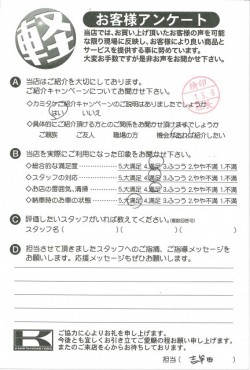 軽
お客様アンケート
当店では、お買い上げ頂いたお客様の声を可能
な限り現場に反映し、お客様により良い商品と
サービスを提供する事に努めています。
大変お手数ですが是非お声をお聞かせ下さい。
A 当店はご紹介を大切にしております。
ご紹介キャンペーンについてお聞かせ下さい。
◇カミタケご紹介キャンペーンのご説明はありましたでしょうか
はい いいえ
◇具体的にご紹介頂ける方とのご関係をお聞かせ頂けますでしょうか
ご親族 ご友人 職場の方 機会があればご紹介したい
B 当店を実際にご利用になった印象をお聞かせ下さい。
◇総合的な満足度 5.大満足 4.満足 3.ふつう 2.やや不満 1.不満
◇スタッフの対応 5.大満足 4.満足 3.ふつう 2.やや不満 1.不満
◇お店の雰囲気,清掃 5.大満足 4.満足 3.ふつう 2.やや不満 1.不満
◇納車時のお車の状態 5.大満足 4.満足 3.ふつう 2.やや不満 1.不満
C 評価したいスタッフがいれば教えてください。(複数回答可)
スタッフ名( )( )( )
D 担当させて頂きましたスタッフへのご指摘、ご指導メッセージを
お願いします。応援メッセージもぜひお願いします。
K
ご協力に心よりお礼を申し上げます。
今後とも宜しくお引き立てご愛顧の程お願い申し上げます。
またのご来店を心からお待ちしております。
担当( )